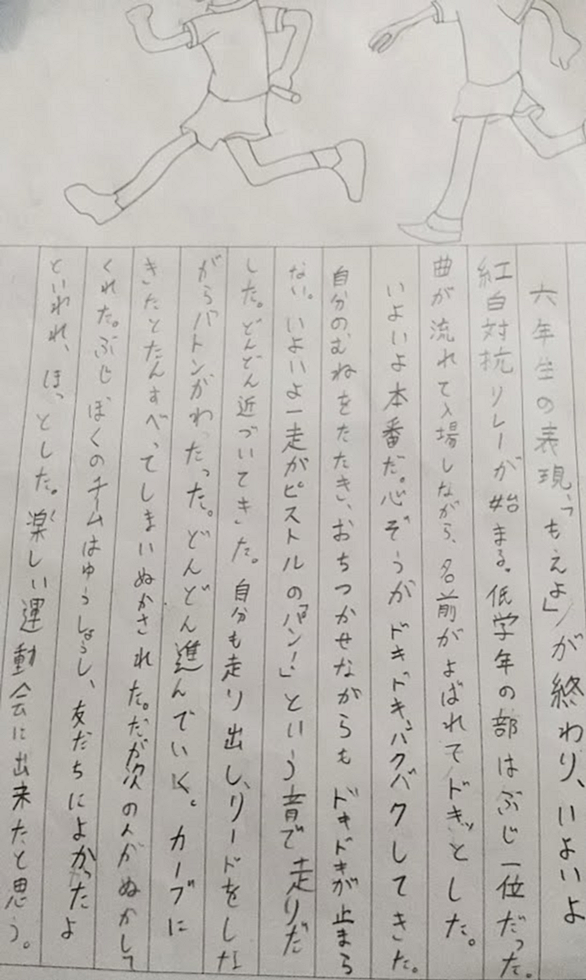 六年生の表現、「もえよ」が終わり、いよいよ
紅白対抗リレーが始まる。低学年の部はぶじ一位だった。
曲が流れて入場しながら、名前がよばれてドキッとした。
いよいよ本番だ。心ぞうがドキドキ、バクバクしてきた。
自分の、むねをたたき、おちつかせながらもドキドキが止まら
ない。いよいよ一走がピストルの「パン!」という音で走りだ
した。どんどん近づいてきた。自分も走り出し、リードをしな
がらバトンがわたった。どんどん進んでいく。カーブに
きたとたんすべってしまいぬかされた。だが次の人がぬかして
くれた。ぶじぼくのチームはゆうしょうし、友だちによかったよ
といわれ、ほっとした。楽しい運動会に出来たと思う。